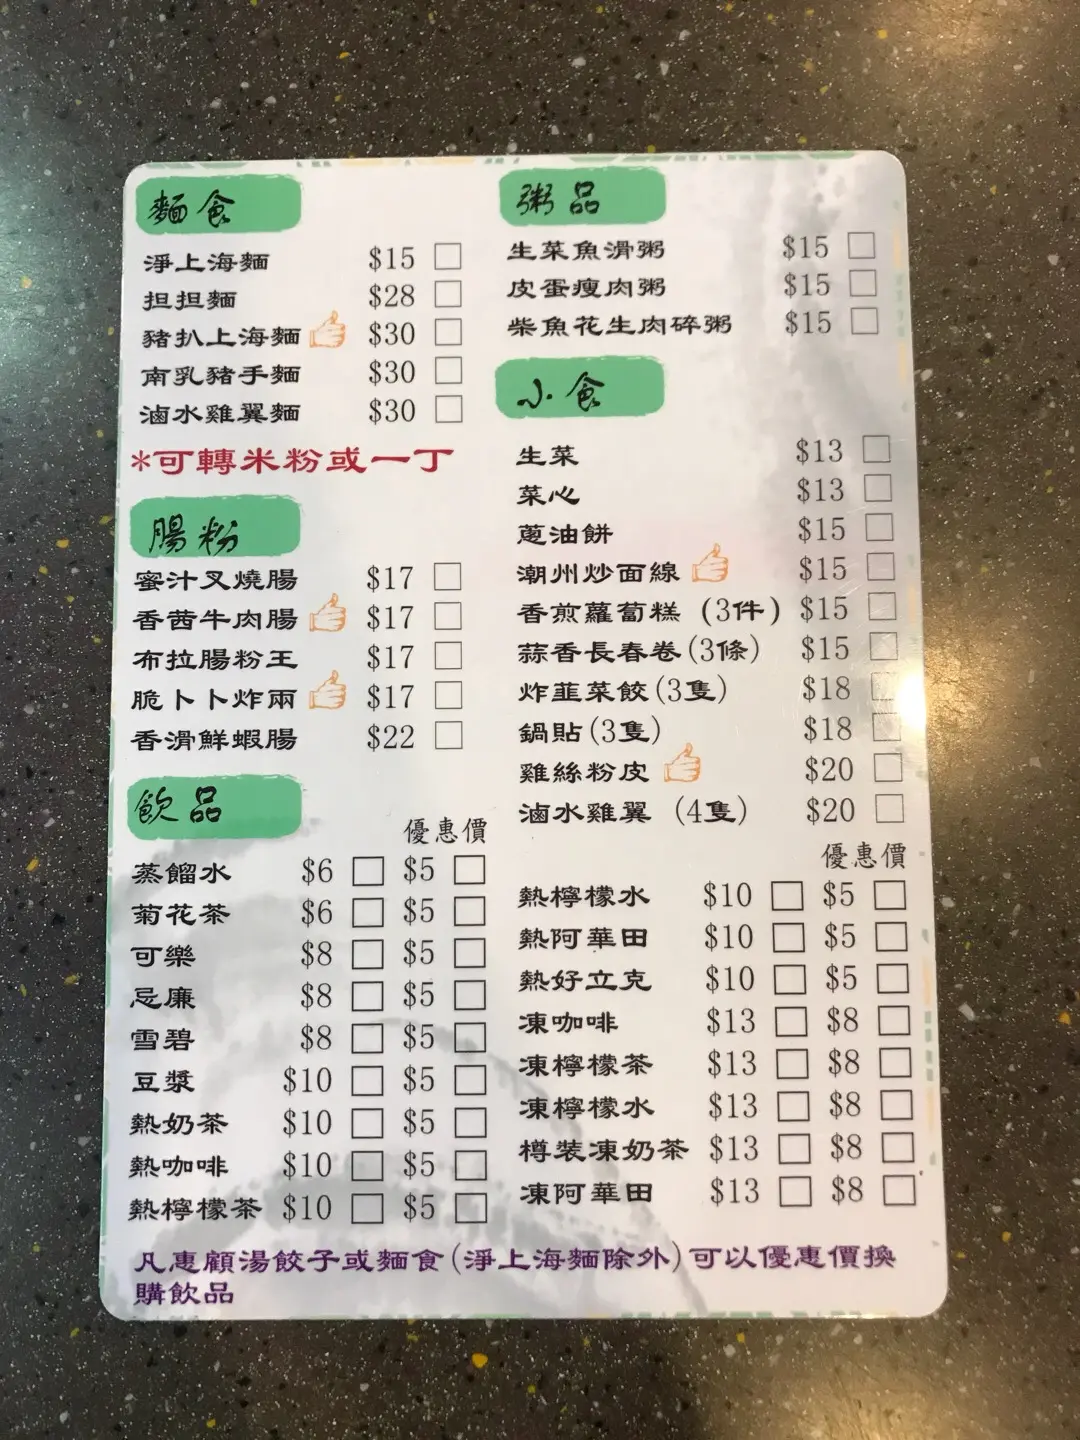 麵食
淨上海麵 $15
担担麵 $28
豬扒上海麵 $30
南乳豬手麵 $30
滷水雞翼麵 $30
*可轉米粉或一丁
腸粉
蜜汁叉燒腸 $17
香茜牛肉腸 $17
布拉腸粉王 $17
脆卜卜炸兩 $17
香滑鮮蝦腸 $22
飲品
優惠價
蒸餾水 $6 $5
菊花茶 $6 $5
可樂 $8 $5
忌廉 $8 $5
雪碧 $8 $5
豆漿 $10 $5
熱奶茶 $10 $5
熱咖啡 $10 $5
熱檸檬茶 $10 $5
粥品
生菜魚滑粥 $15
皮蛋瘦肉粥 $15
柴魚花生肉碎粥 $15
小食
生菜 $13
菜心 $13
蔥油餅 $15
潮州炒面線 $15
香煎蘿蔔糕 (3件) $15
蒜香長春卷(3條) $15
炸韮菜餃(3隻) $18
鍋貼(3隻) $18
雞絲粉皮 $20
滷水雞翼 (4隻) $20
優惠價
熱檸檬水 $10 $5
熱阿華田 $10 $5
熱好立克 $10 $5
凍咖啡 $13 $8
凍檸檬茶 $13 $8
凍檸檬水 $13 $8
樽裝凍奶茶 $13 $8
凍阿華田 $13 $8
凡惠顧湯餃子或麵食(淨上海麵除外)可以優惠價換
購飲品